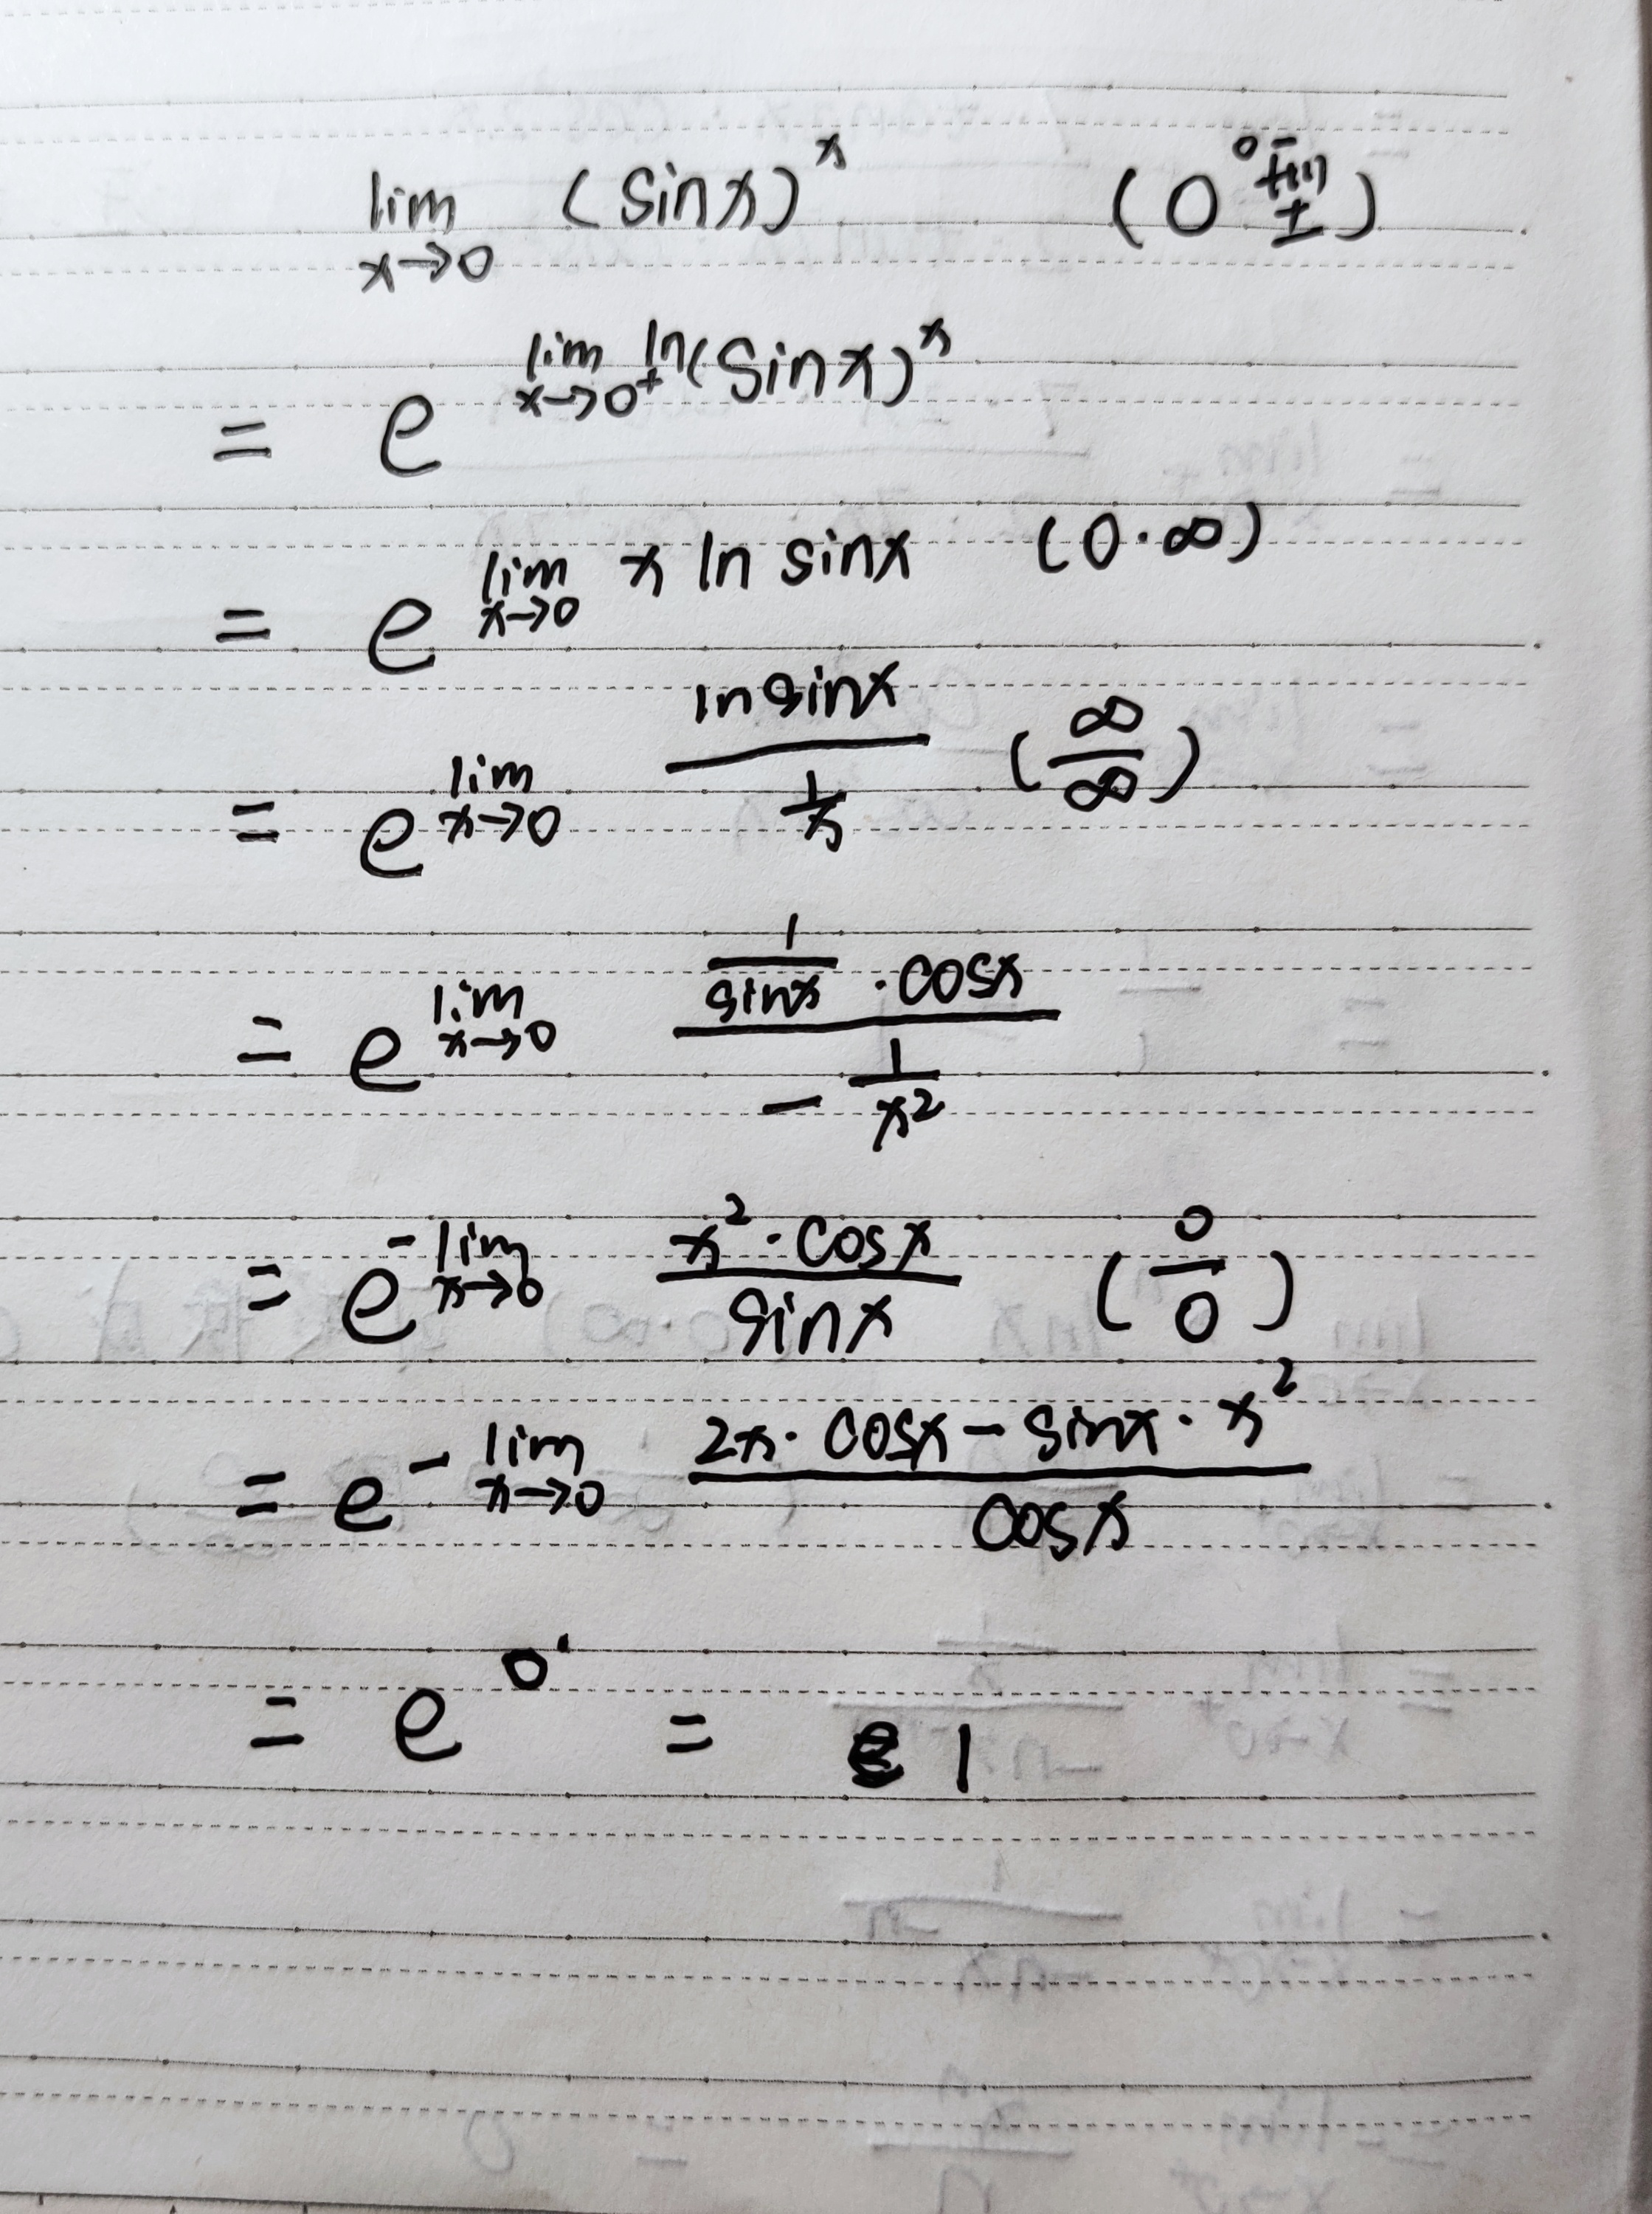 lim x→0 (sinx)^x (0^0型)
= e^{lim x→0⁺ ln(sinx)^x}
= e^{lim x→0 x ln sinx} (0·∞)
= e^{lim x→0 \frac{ln sinx}{\frac{1}{x}}} (\frac{∞}{∞})
= e^{lim x→0 \frac{\frac{1}{sinx}·cosx}{-\frac{1}{x²}}}
= e^{-lim x→0 \frac{x²·cosx}{sinx}} (\frac{0}{0})
= e^{-lim x→0 \frac{2x·cosx-sinx·x²}{cosx}}
= e^0 = 1